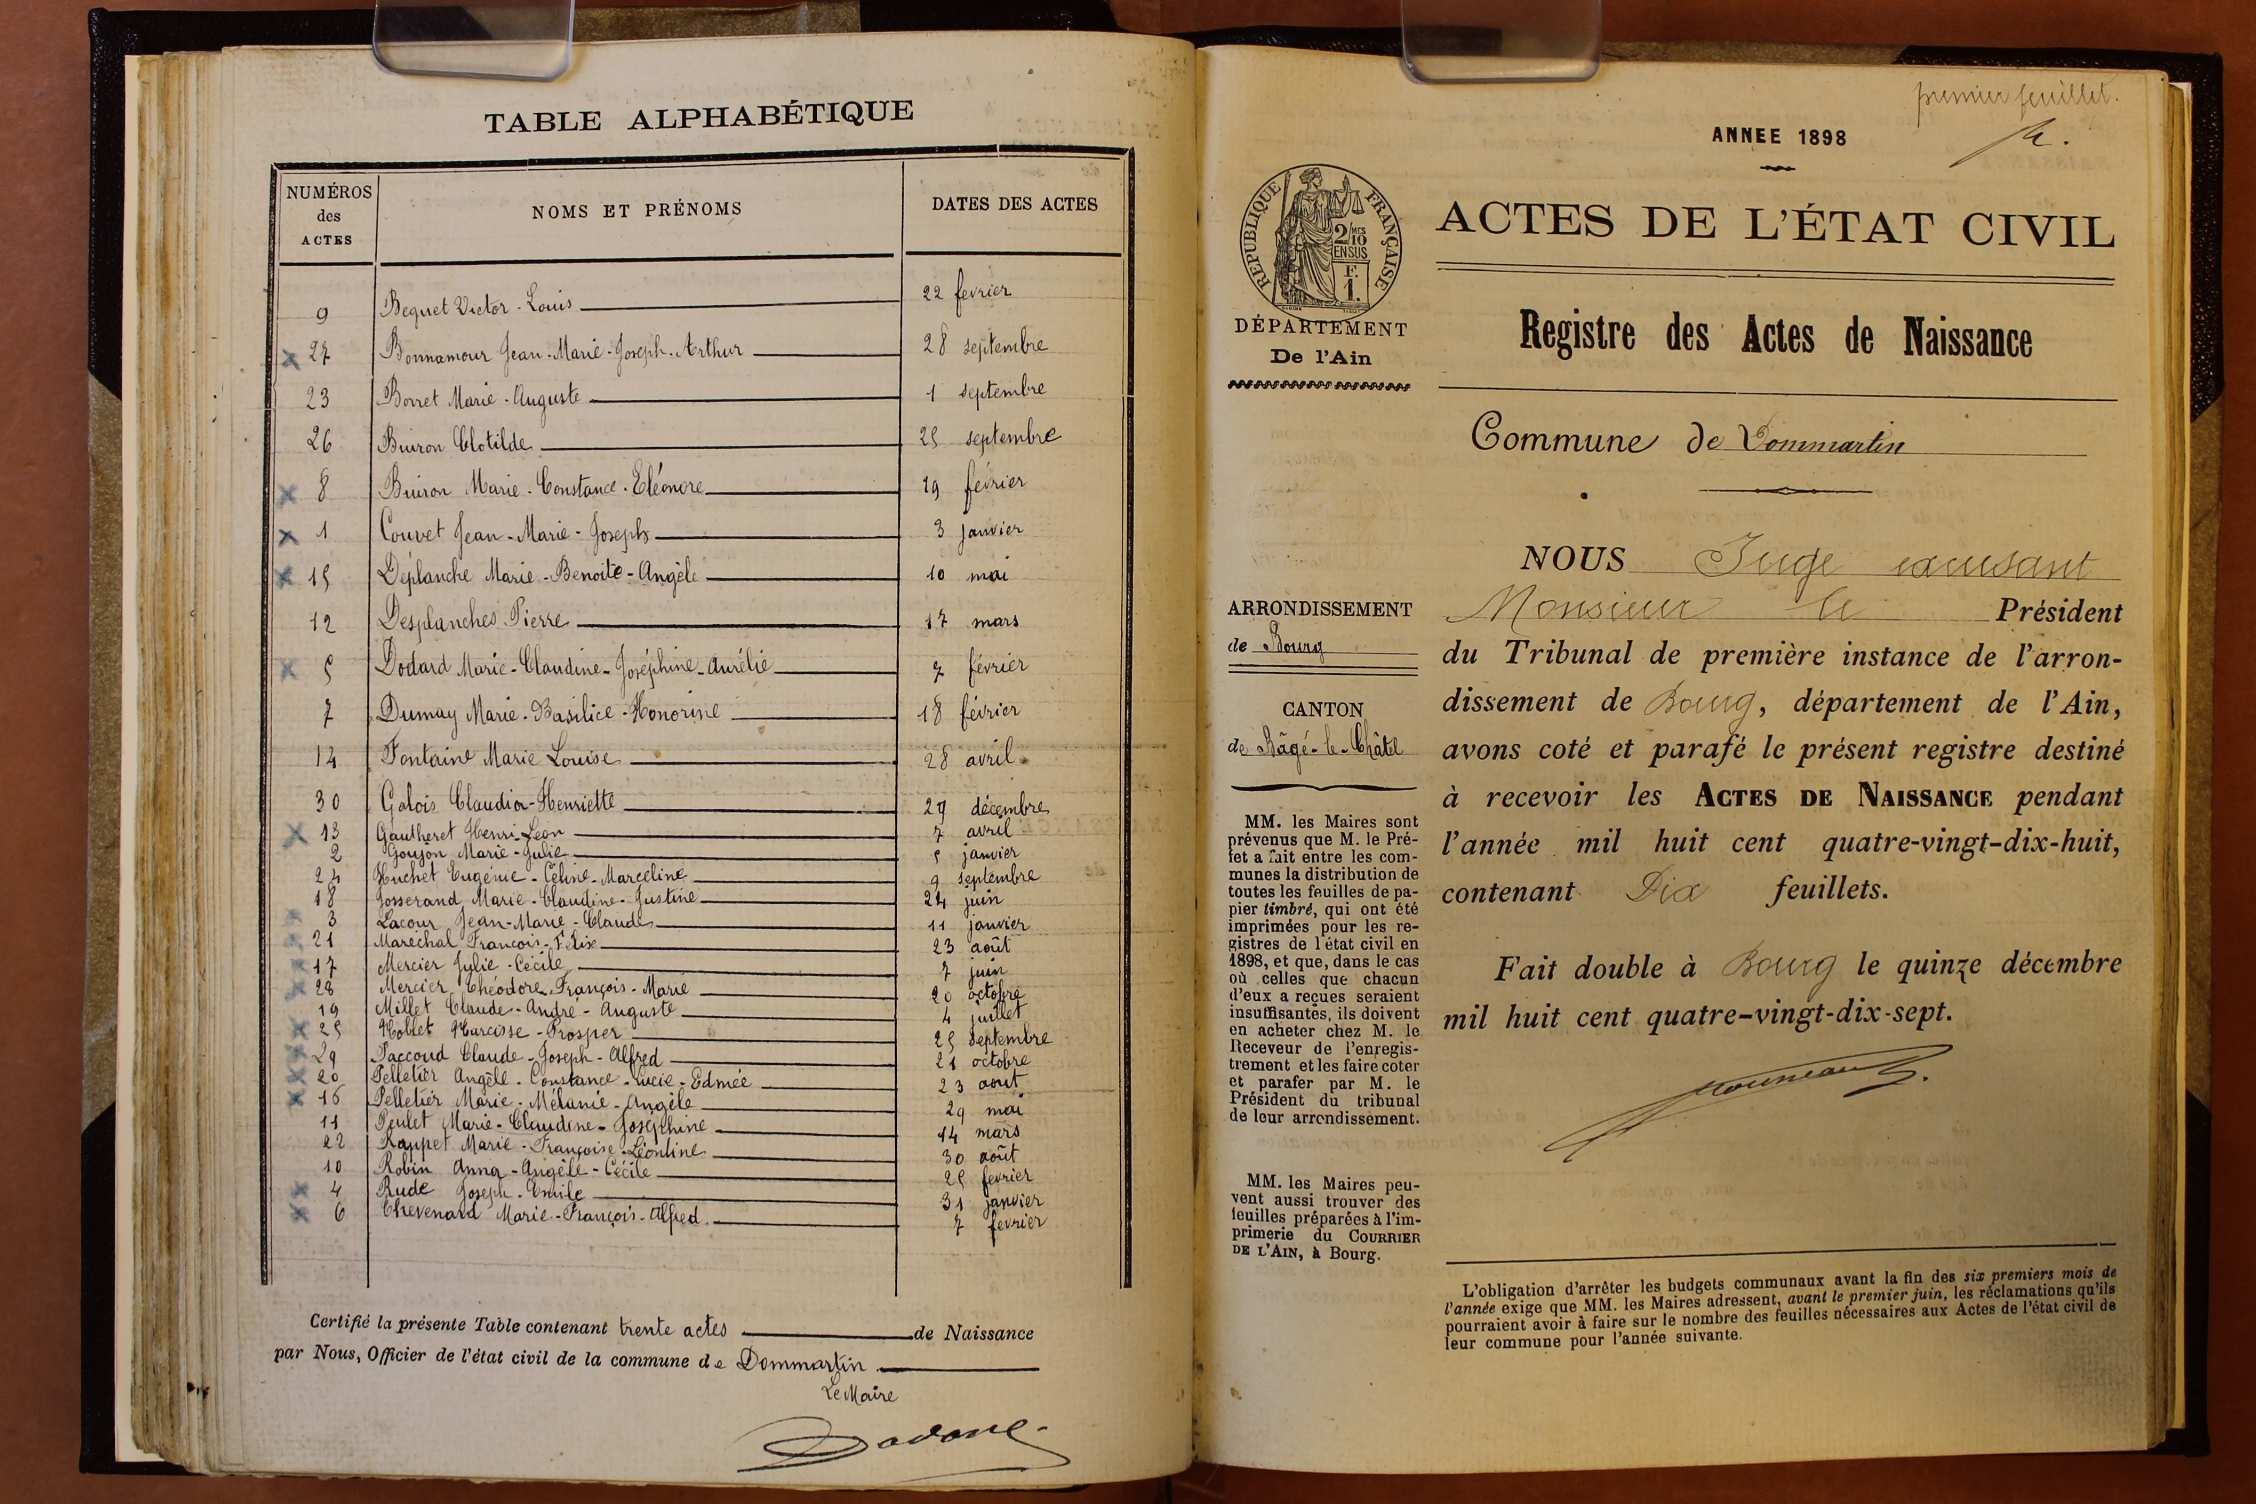 TABLE ALPHABÉTIQUE
NUMÉROS des ACTES NOMS ET PRÉNOMS DATES DES ACTES
9 Bequet Victor-Louis 22 fevrier
27 Bonnamour Jean-Marie-Joseph-Arthur 28 septembre
23 Borret Marie-Auguste 1 septembre
26 Buiron Clotilde 25 septembre
8 Buiron Marie-Constance-Eléonore 19 février
1 Couvet Jean-Marie-Joseph 3 janvier
15 Déplanche Marie-Benoite-Angèle 10 mai
12 Desplanches Pierre 17 mars
5 Dodard Marie-Claudine-Joséphine-Aurélie 7 février
7 Dumay Marie-Basilice-Honorine 18 février
14 Fontaine Marie Louise 28 avril
30 Galois Claudia-Henriette 29 décembre
13 Gautheret Henri-Léon 7 avril
2 Goujon Marie-Julie 5 janvier
24 Huchet Eugénie-Céline-Marceline 9 septembre
18 Josserand Marie-Claudine-Justine 24 juin
3 Lacour Jean-Marie-Claude 11 janvier
21 Maréchal François-Félix 23 août
17 Mercier Julie-Cécile 7 juin
28 Mercier Théodore-François-Marie 20 octobre
19 Millet Claude-André-Auguste 4 juillet
25 Noblet Narcisse-Prosper 25 septembre
29 Paccoud Claude-Joseph-Alfred 21 octobre
20 Pelletier Angèle-Constance-Lucie-Edmée 23 aout
16 Pelletier Marie-Mélanie-Angèle 29 mai
11 Poulet Marie-Claudine-Joséphine 14 mars
22 Rappet Marie-Françoise-Léontine 30 août
10 Robin Anna-Angèle-Cécile 25 fevrier
4 Rude Joseph-Emile 31 janvier
6 Chevenard Marie-François-Alfred 7 fevrier
Certifié la présente Table contenant trente actes de Naissance
par Nous, Officier de l'état civil de la commune de Dommartin
Le Maire
premier feuillet.
ANNEE 1898
RÉPUBLIQUE FRANÇAISE
2/10 MES
EN SUS
F.
1.
DÉPARTEMENT
De l'Ain
ACTES DE L'ÉTAT CIVIL
Registre des Actes de Naissance
Commune de Dommartin
ARRONDISSEMENT
de Bourg
CANTON
de Bâgé-le-Châtel
MM. les Maires sont
prévenus que M. le Pré-
fet a fait entre les com-
munes la distribution de
toutes les feuilles de pa-
pier timbré, qui ont été
imprimées pour les re-
gistres de l'état civil en
1898, et que, dans le cas
où celles que chacun
d'eux a reçues seraient
insuffisantes, ils doivent
en acheter chez M. le
Receveur de l'enregis-
trement et les faire coter
et parafer par M. le
Président du tribunal
de leur arrondissement.
MM. les Maires peu-
vent aussi trouver des
feuilles préparées à l'im-
primerie du COURRIER
DE L'AIN, à Bourg.
NOUS Juge excusant
Monsieur le Président
du Tribunal de première instance de l'arron-
dissement de Bourg, département de l'Ain,
avons coté et parafé le présent registre destiné
à recevoir les ACTES DE NAISSANCE pendant
l'année mil huit cent quatre-vingt-dix-huit,
contenant Dix feuillets.
Fait double à Bourg le quinze décembre
mil huit cent quatre-vingt-dix-sept.
L'obligation d'arrêter les budgets communaux avant la fin des six premiers mois de
l'année exige que MM. les Maires adressent, avant le premier juin, les réclamations qu'ils
pourraient avoir à faire sur le nombre des feuilles nécessaires aux Actes de l'état civil de
leur commune pour l'année suivante.